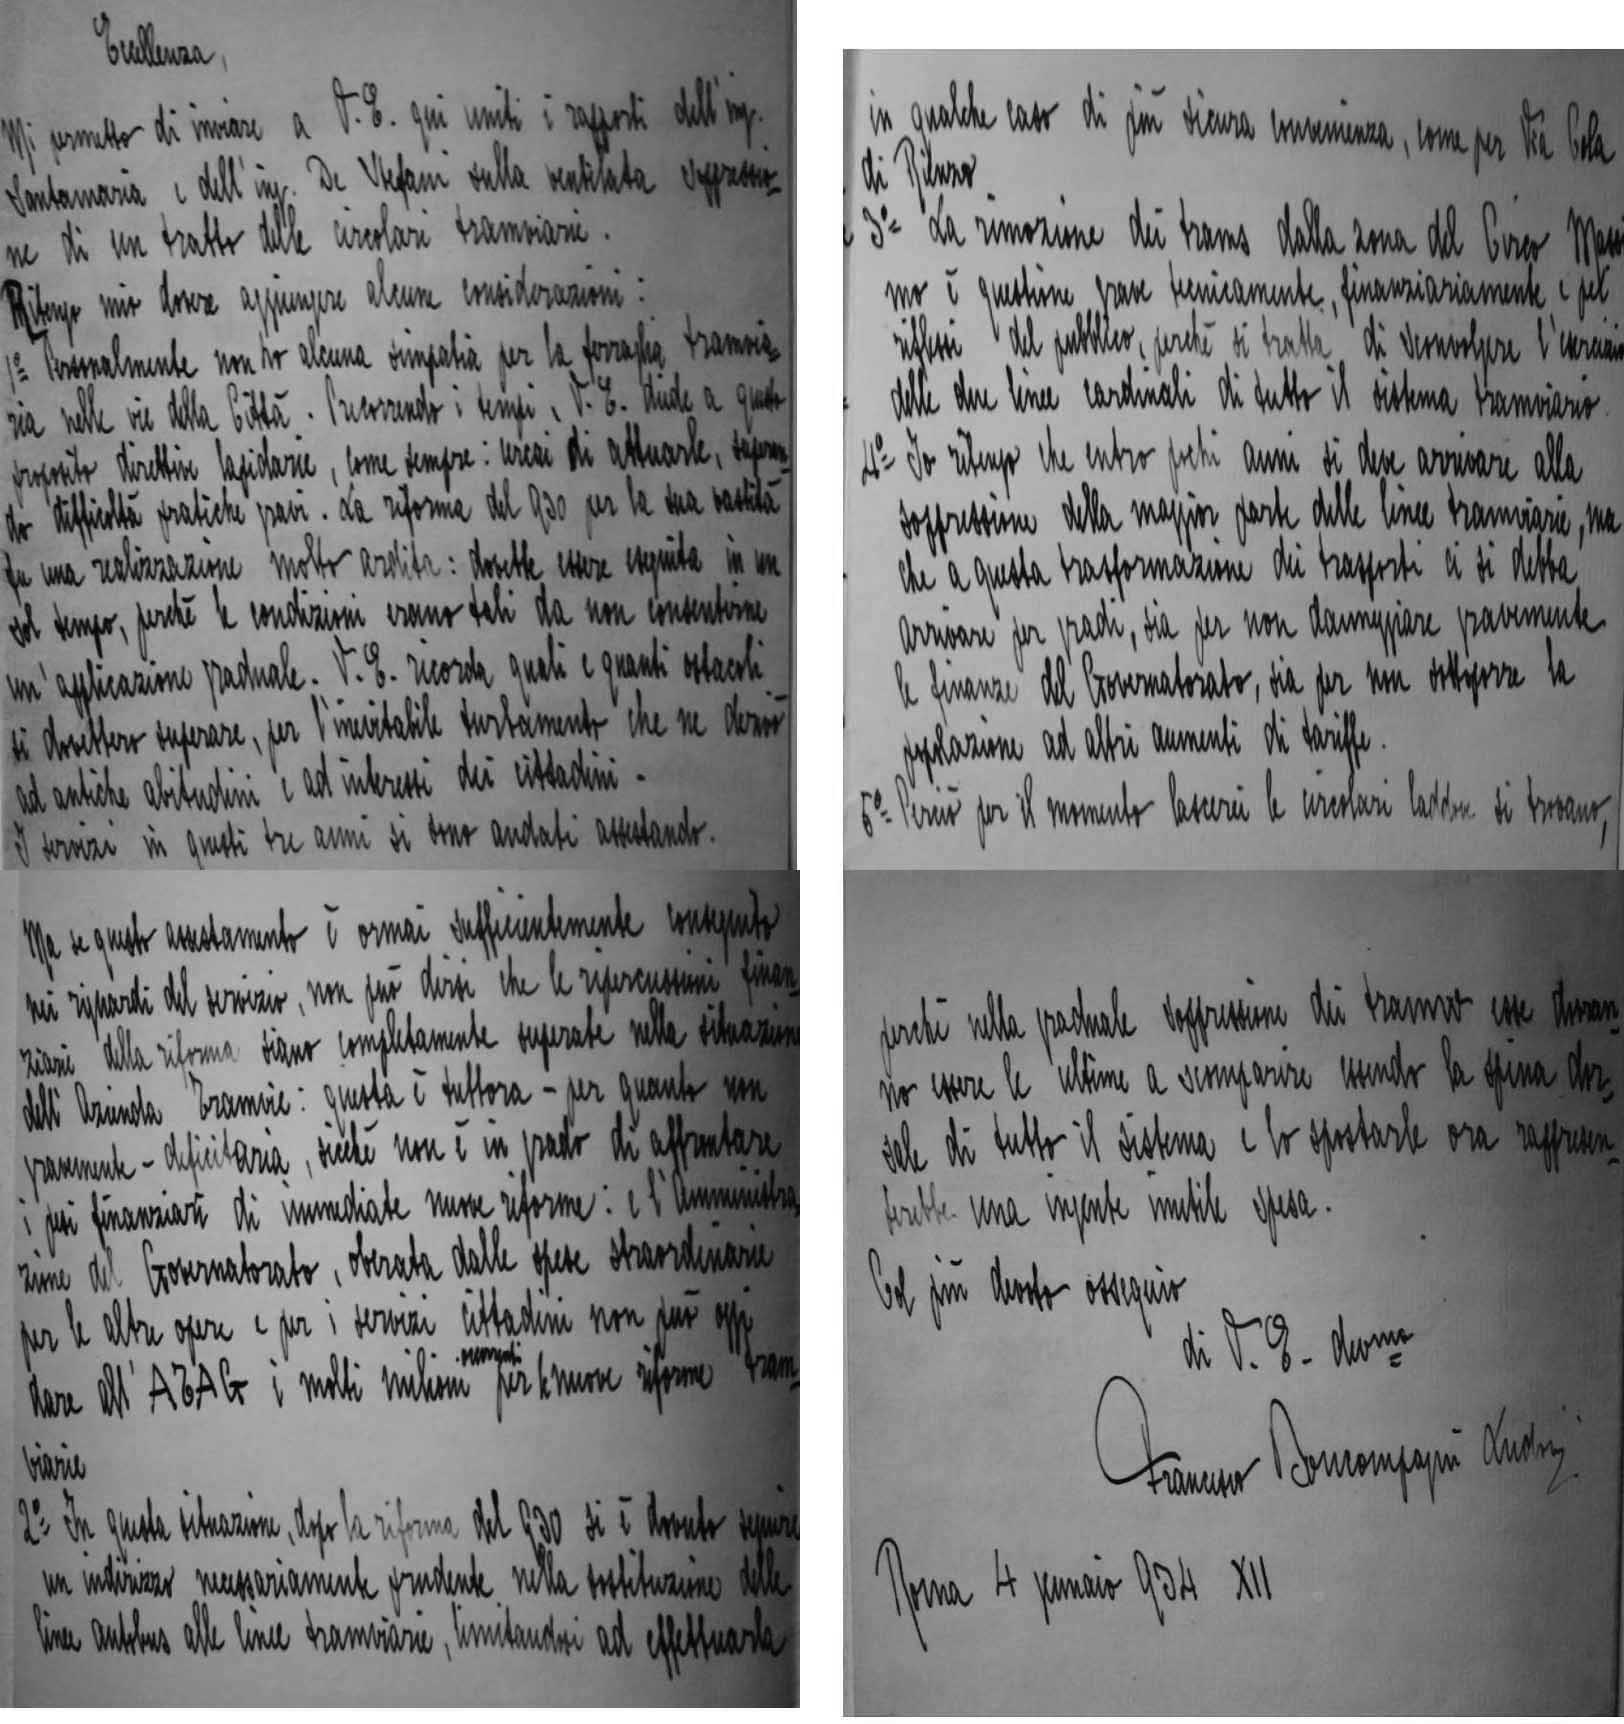 Eccellenza,
Mi permetto di inviare a V. E. qui uniti i rapporti dell'ing.
Santamaria e dell'ing. De Stefani sulla ventilata soppressio-
ne di un tratto delle circolari tramviarie.
Ritengo mio dovere aggiungere alcune considerazioni:
1º Personalmente non ho alcuna simpatia per la ferraglia tramvia-
ria nelle vie della Città. Precorrendo i tempi, V. E. diede a questo
proposito direttive lapidarie, come sempre: cercai di attuarle, superan-
do difficoltà pratiche gravi. La riforma del 930 per la sua vastità
fu una realizzazione molto ardita: dovette essere eseguita in un
sol tempo, perchè le condizioni erano tali da non consentirne
un'applicazione graduale. V. E. ricorda quali e quanti ostacoli
si dovettero superare, per l'inevitabile turbamento che ne derivò
ad antiche abitudini e ad interessi dei cittadini.
I servizi in questi tre anni si sono andati assestando.
Ma se questo assestamento è ormai sufficientemente conseguito
nei riguardi del servizio, non può dirsi che le ripercussioni finan-
ziarie della riforma siano completamente superate nella situazione
dell'Azienda Tramvie: questa è tuttora - per quanto non
gravemente - deficitaria, sicchè non è in grado di affrontare
i pesi finanziarii di immediate nuove riforme: e l'Amministra-
zione del Governatorato, oberata dalle spese straordinarie
per le altre opere e per i servizi cittadini non può oggi
dare all'ATAG i molti milioni occorrenti per le nuove riforme tram-
viarie
2º In questa situazione, dopo la riforma del 930 si è dovuto seguire
un indirizzo necessariamente prudente nella sostituzione delle
linee autobus alle linee tramviarie, limitandosi ad effettuarla
in qualche caso di più sicura convenienza, come per Via Cola
di Rienzo
3º La rimozione dei trams dalla zona del Circo Massi
mo è questione grave tecnicamente, finanziariamente e pei
riflessi del pubblico, perchè si tratta di sconvolgere l'esercizio
delle due linee cardinali di tutto il sistema tramviario.
4º Io ritengo che entro pochi anni si deve arrivare alla
soppressione della maggior parte delle linee tramviarie, ma
che a questa trasformazione dei trasporti ci si debba
arrivare per gradi, sia per non danneggiare gravemente
le finanze del Governatorato, sia per non sottoporre la
popolazione ad altri aumenti di tariffe.
5º Perciò per il momento lascerei le circolari laddove si trovano,
perchè nella graduale soppressione dei tramvai esse dovran-
no essere le ultime a scomparire essendo la spina dor-
sale di tutto il sistema e lo spostarle ora rappresen-
terebbe una ingente inutile spesa.
Col più devoto ossequio
di V. E. devmo
Francesco Boncompagni Ludovisi
Roma 4 gennaio 934 XII